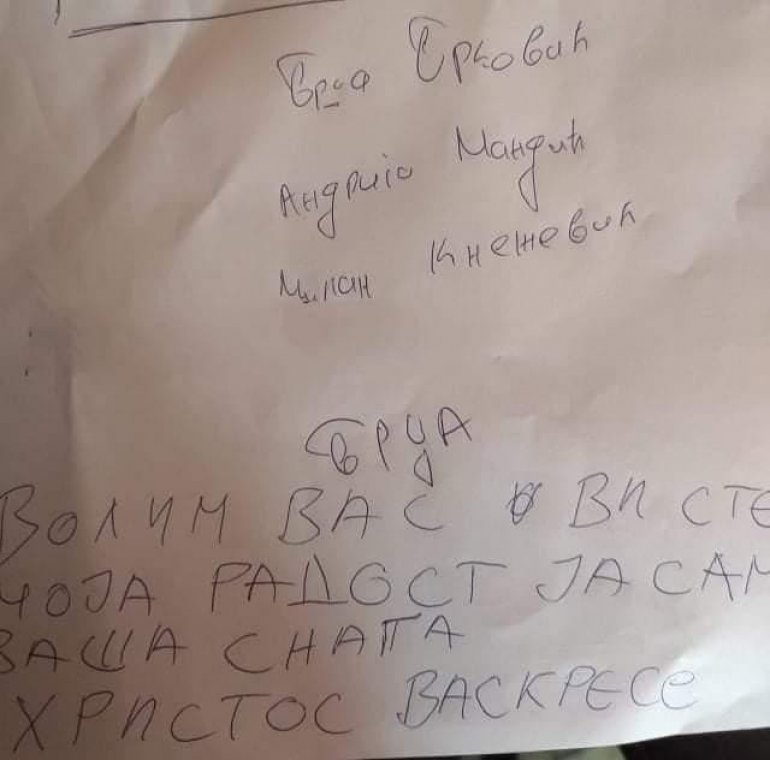 Брца Брковић
Андрија Мандић
Милан Кнежевић
БРЦА
ВОЛИМ ВАС ВИ СТЕ
МОЈА РАДОСТ ЈА САМ
ВАША СНАПА
ХРИСТОС ВАСКРЕСЕ